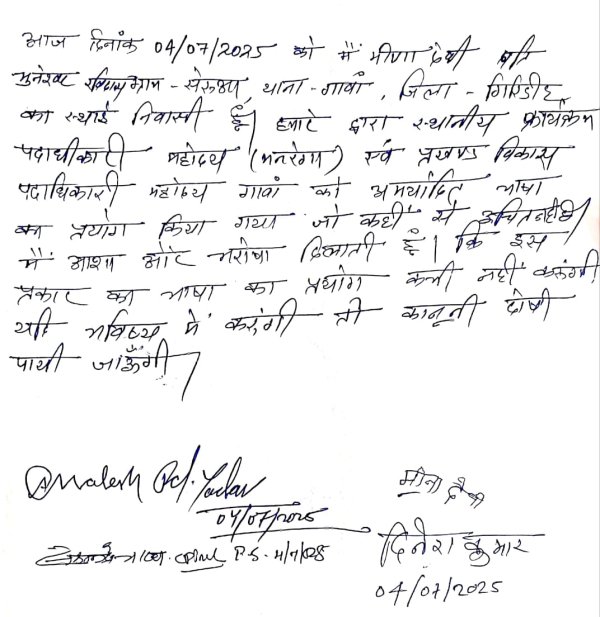 आज दिनांक 04/07/2025 को मैं मीणा देवी पति
मुनेश्वर ग्राम - सेरूआ, थाना - गावाँ, जिला - गिरिडीह
का स्थाई निवासी हूँ। हमारे द्वारा स्थानीय कार्यक्रम
पदाधीकारी महोदय (मनरेगा) एवं प्रखण्ड विकास
पदाधिकारी महोदय गावां को अमर्यादित भाषा
का प्रयोग किया गया जो कहीं से उचित नहीं है।
मैं आशा और भरोषा दिलाती हूँ। कि इस
प्रकार का भाषा का प्रयोग कभी नहीं करूंगी
यदि भविष्य में करूंगी तो कानूनी दोषी
पायी जाऊँगी।
Pd. Yadav
04/07/2025
मीना देवी
P.S. 4/7/025
दिनेश कुमार
04/07/2025